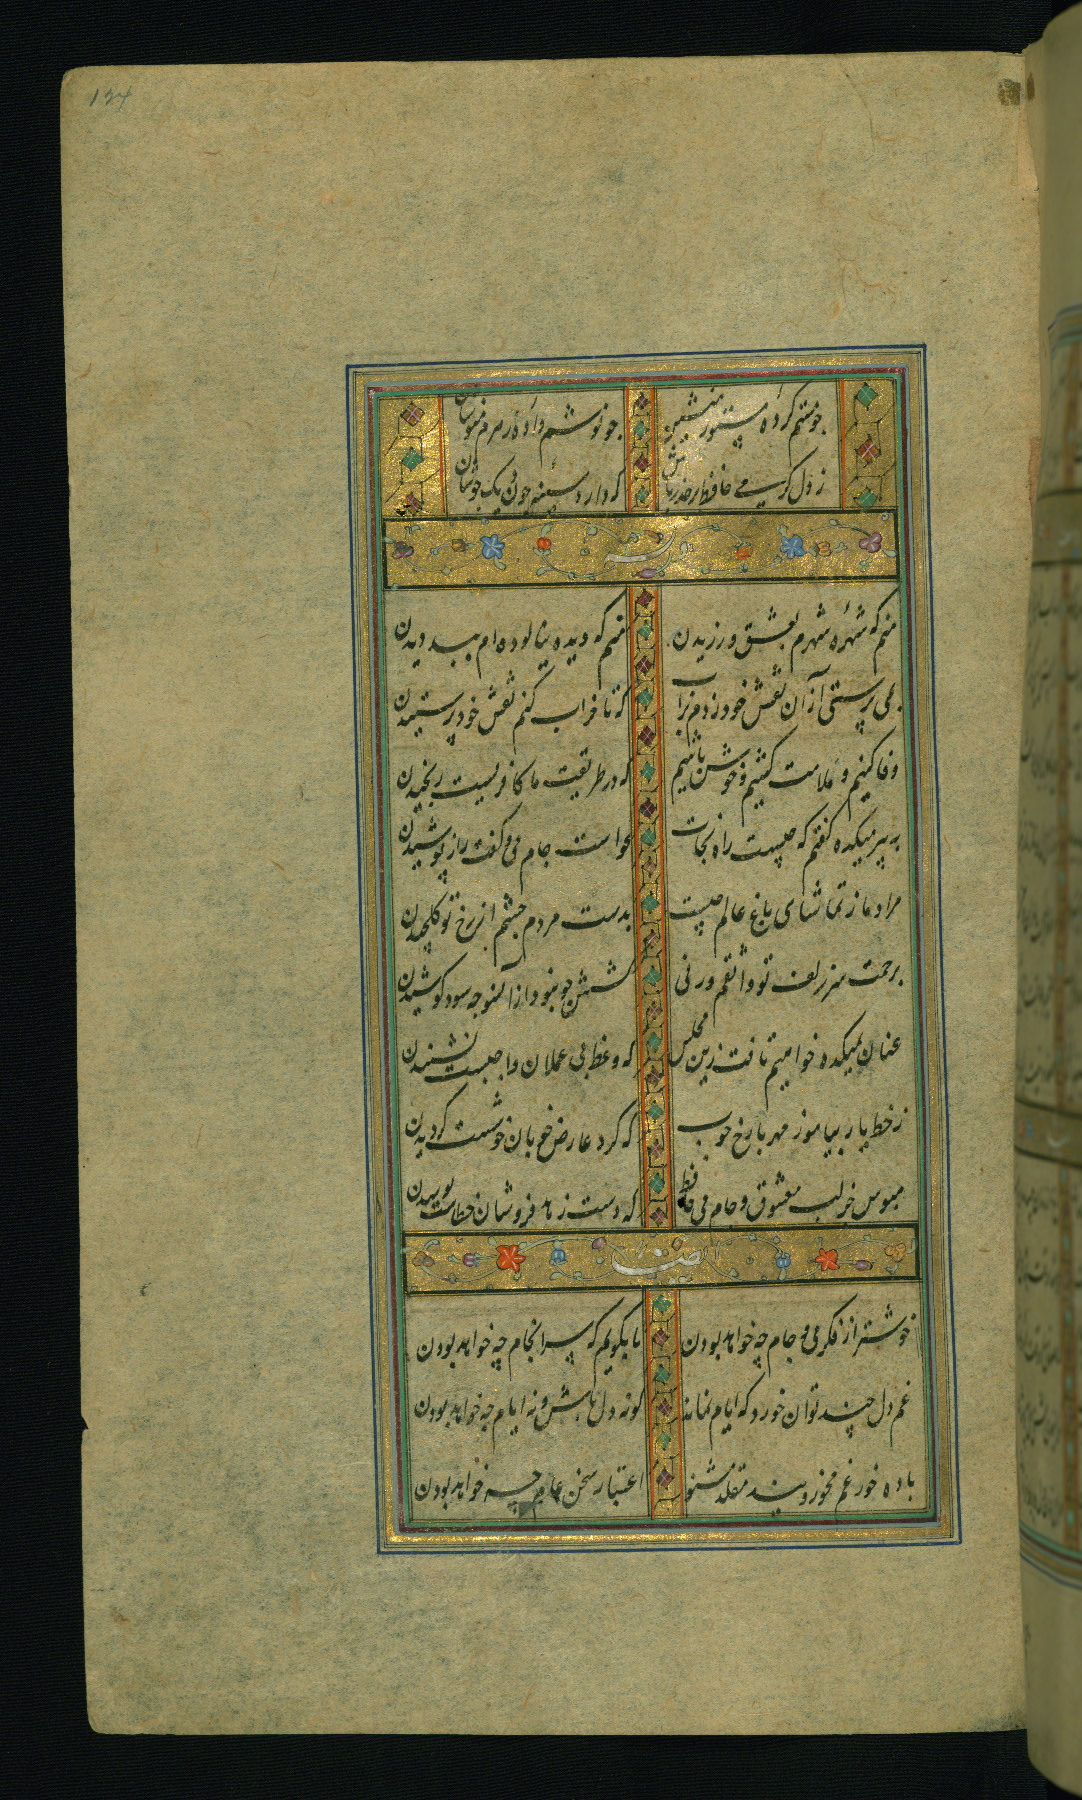 124
چو مستم کرده مستور منشین
چو نوشم داده زهرم منوشان
ز دل گرمی حافظ بر حذر باش
که دارد سینه چون دیک جوشان
منم که شهره شهرم بعشق ورزیدن
منم که دیده نیالوده ام ببد دیدن
بمی پرستی از آن نقش خود زدم بر آب
که تا خراب کنم نقش خود پرستیدن
وفا کنیم و ملامت کشیم و خوش باشیم
که در طریقت ما کافریست رنجیدن
به پیر میکده گفتم که چیست راه نجات
بخواست جام می و گفت راز پوشیدن
مراد ما ز تماشای باغ عالم چیست
بدست مردم چشم از رخ تو گلچیدن
برحمت سر زلف تو واثقم ورنی
کشش چو نبود از آنسو چه سود کوشیدن
عنان بمیکده خواهیم تافت زین مجلس
که وعظ بی عملان واجبست نشنیدن
ز خط یار بیاموز مهر با رخ خوب
که گرد عارض خوبان خوشست گردیدن
مبوس جز لب معشوق و جام می حافظ
که دست زهد فروشان خطاست بوسیدن
ایضا
خوشتر از فکر می و جام چه خواهد بودن
تا بگویم که سرانجام چه خواهد بودن
غم دل چند توان خورد که ایام نماند
گو نه دل باش و نه ایام چه خواهد بودن
باده خور غم مخور و پند مقلد مشنو
اعتبار سخن عام چه خواهد بودن